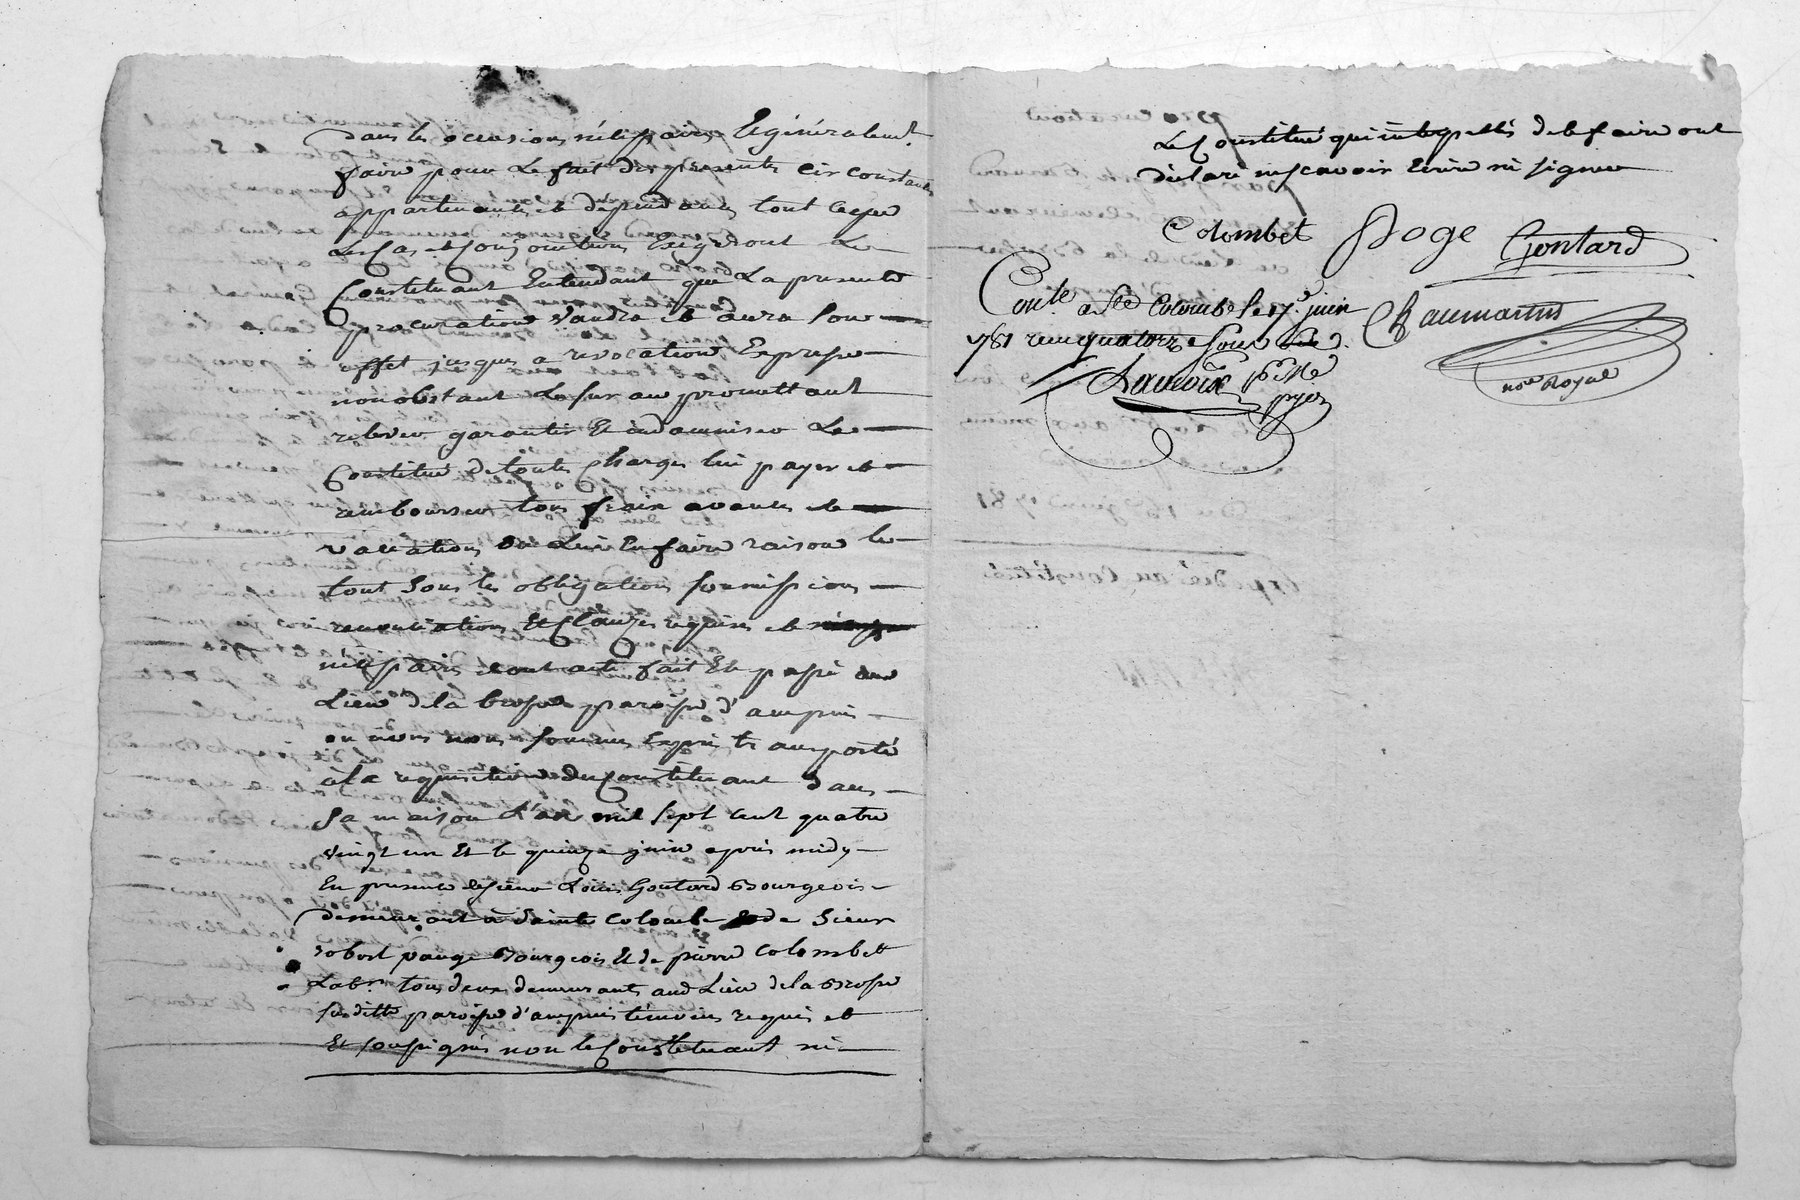 dans les occasions nécessaires Et généralemt.
faire pour Le fait des presentes circonstances
appartenances et dépendances tout ceque
Les Cas et Conjonctions Exigeront Le
Constituant Entendant que La presente
procuration Vaudra et aura Son
effet jusques a revocation Expresse
nonobstant La sur an promettant
relever garantir Et indamniser Le
Constitué de toutes Charges lui payer et
rembourser tous frais avances et
vaccations ou Lui En faire raison le
tout Sous les obligations soumissions
renontiations Et Clauzes requises et
nécessaires dont acte fait Et passé au
Lieu de la brosse paroisse d'ampuis
ou nous nous sommes Exprès transporté
à la requisition du Constituant dans
Sa maison L'an mil sept cent quatre
vingt un Et le quinze juin après midy
En presence de Sieur Louis Gontard Bourgeois
demeurant à Sainte Colombe de Sieur
robert pauge Bourgeois Et de pierre Colombet
Labr. tous deux demeurants aud Lieu de la Brosse
susditte paroisse d'ampuis témoins requis et
Et soussignés non le Constituant ni
Le Constitué qui interpellés de le faire ont
déclaré ne scavoir Ecrire ni signer
Colombet Poge Gontard
Contlé. a Ste Colombe le 17e. juin
1781 reçu quatorze Sous
Chaumartin
nore Royal